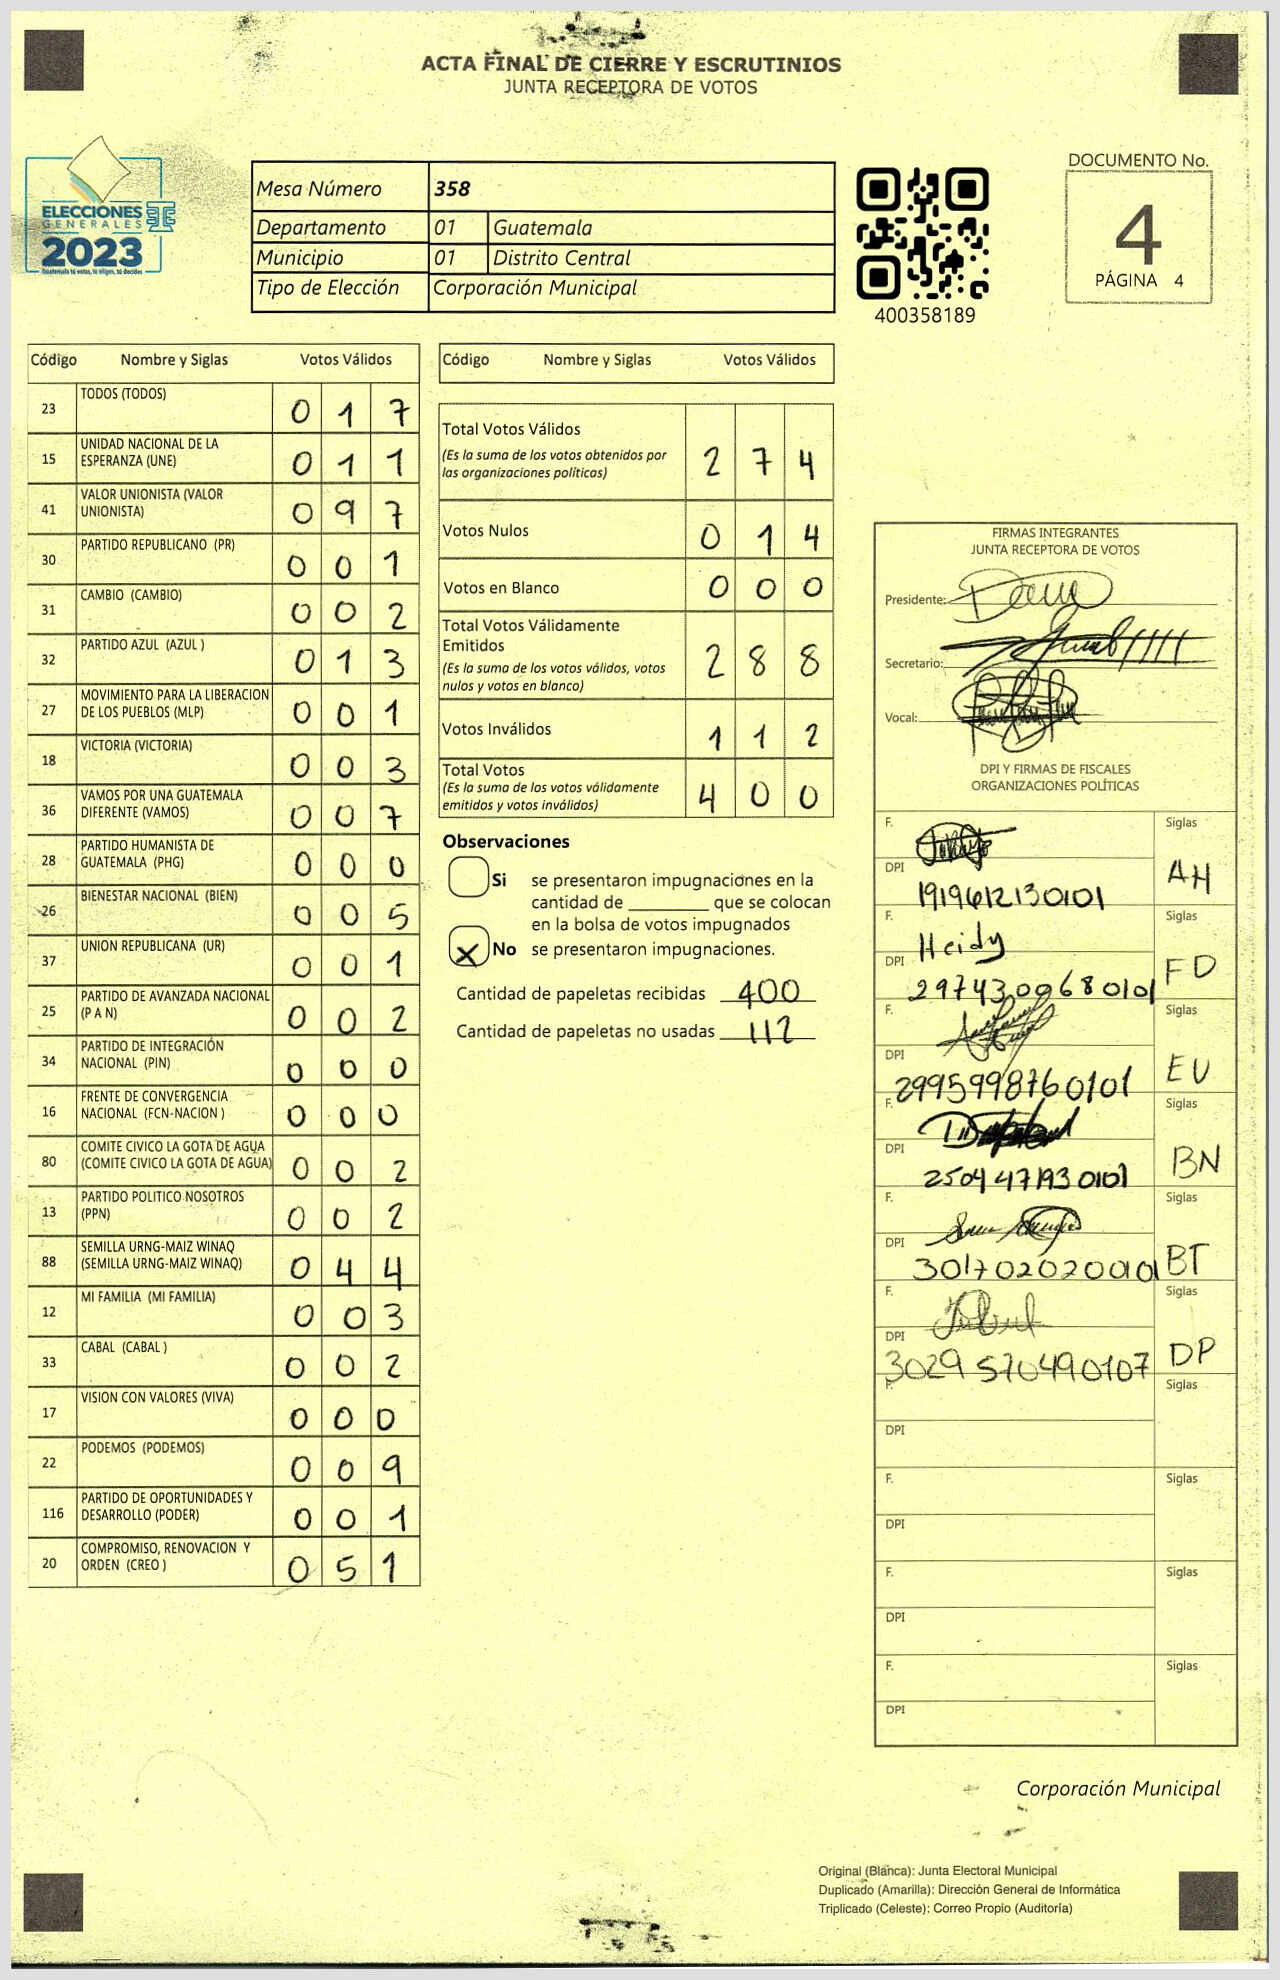 ACTA FINAL DE CIERRE Y ESCRUTINIOS
JUNTA RECEPTORA DE VOTOS
ELECCIONES
GENERALES
2023
Guatemala tú votas, tú eliges, tú decides
Mesa Número 358
Departamento 01 Guatemala
Municipio 01 Distrito Central
Tipo de Elección Corporación Municipal
400358189
DOCUMENTO No.
4
PÁGINA 4
Código Nombre y Siglas Votos Válidos
23 TODOS (TODOS) 0 1 7
15 UNIDAD NACIONAL DE LA
ESPERANZA (UNE) 0 1 1
41 VALOR UNIONISTA (VALOR
UNIONISTA) 0 9 7
30 PARTIDO REPUBLICANO (PR) 0 0 1
31 CAMBIO (CAMBIO) 0 0 2
32 PARTIDO AZUL (AZUL ) 0 1 3
27 MOVIMIENTO PARA LA LIBERACION
DE LOS PUEBLOS (MLP) 0 0 1
18 VICTORIA (VICTORIA) 0 0 3
36 VAMOS POR UNA GUATEMALA
DIFERENTE (VAMOS) 0 0 7
28 PARTIDO HUMANISTA DE
GUATEMALA (PHG) 0 0 0
26 BIENESTAR NACIONAL (BIEN) 0 0 5
37 UNION REPUBLICANA (UR) 0 0 1
25 PARTIDO DE AVANZADA NACIONAL
(P A N) 0 0 2
34 PARTIDO DE INTEGRACIÓN
NACIONAL (PIN) 0 0 0
16 FRENTE DE CONVERGENCIA
NACIONAL (FCN-NACION ) 0 0 0
80 COMITE CIVICO LA GOTA DE AGUA
(COMITE CIVICO LA GOTA DE AGUA) 0 0 2
13 PARTIDO POLITICO NOSOTROS
(PPN) 0 0 2
88 SEMILLA URNG-MAIZ WINAQ
(SEMILLA URNG-MAIZ WINAQ) 0 4 4
12 MI FAMILIA (MI FAMILIA) 0 0 3
33 CABAL (CABAL ) 0 0 2
17 VISION CON VALORES (VIVA) 0 0 0
22 PODEMOS (PODEMOS) 0 0 9
116 PARTIDO DE OPORTUNIDADES Y
DESARROLLO (PODER) 0 0 1
20 COMPROMISO, RENOVACION Y
ORDEN (CREO ) 0 5 1
Código Nombre y Siglas Votos Válidos
Total Votos Válidos
(Es la suma de los votos obtenidos por
las organizaciones políticas) 2 7 4
Votos Nulos 0 1 4
Votos en Blanco 0 0 0
Total Votos Válidamente
Emitidos
(Es la suma de los votos válidos, votos
nulos y votos en blanco) 2 8 8
Votos Inválidos 1 1 2
Total Votos
(Es la suma de los votos válidamente
emitidos y votos inválidos) 4 0 0
Observaciones
Si se presentaron impugnaciones en la
cantidad de ________ que se colocan
en la bolsa de votos impugnados
X No se presentaron impugnaciones.
Cantidad de papeletas recibidas 400
Cantidad de papeletas no usadas 112
FIRMAS INTEGRANTES
JUNTA RECEPTORA DE VOTOS
Presidente:
Secretario:
Vocal:
DPI Y FIRMAS DE FISCALES
ORGANIZACIONES POLÍTICAS
F. Siglas
DPI AH
1919612130101
F. Heidy Siglas
DPI FD
2974300680101
F. Siglas
DPI EU
2995998760101
F. Siglas
DPI BN
2504471930101
F. Siglas
DPI BT
3017020200101
F. Siglas
DPI DP
3029570490107
F. Siglas
DPI
F. Siglas
DPI
F. Siglas
DPI
F. Siglas
DPI
Corporación Municipal
Original (Blanca): Junta Electoral Municipal
Duplicado (Amarilla): Dirección General de Informática
Triplicado (Celeste): Correo Propio (Auditoría)